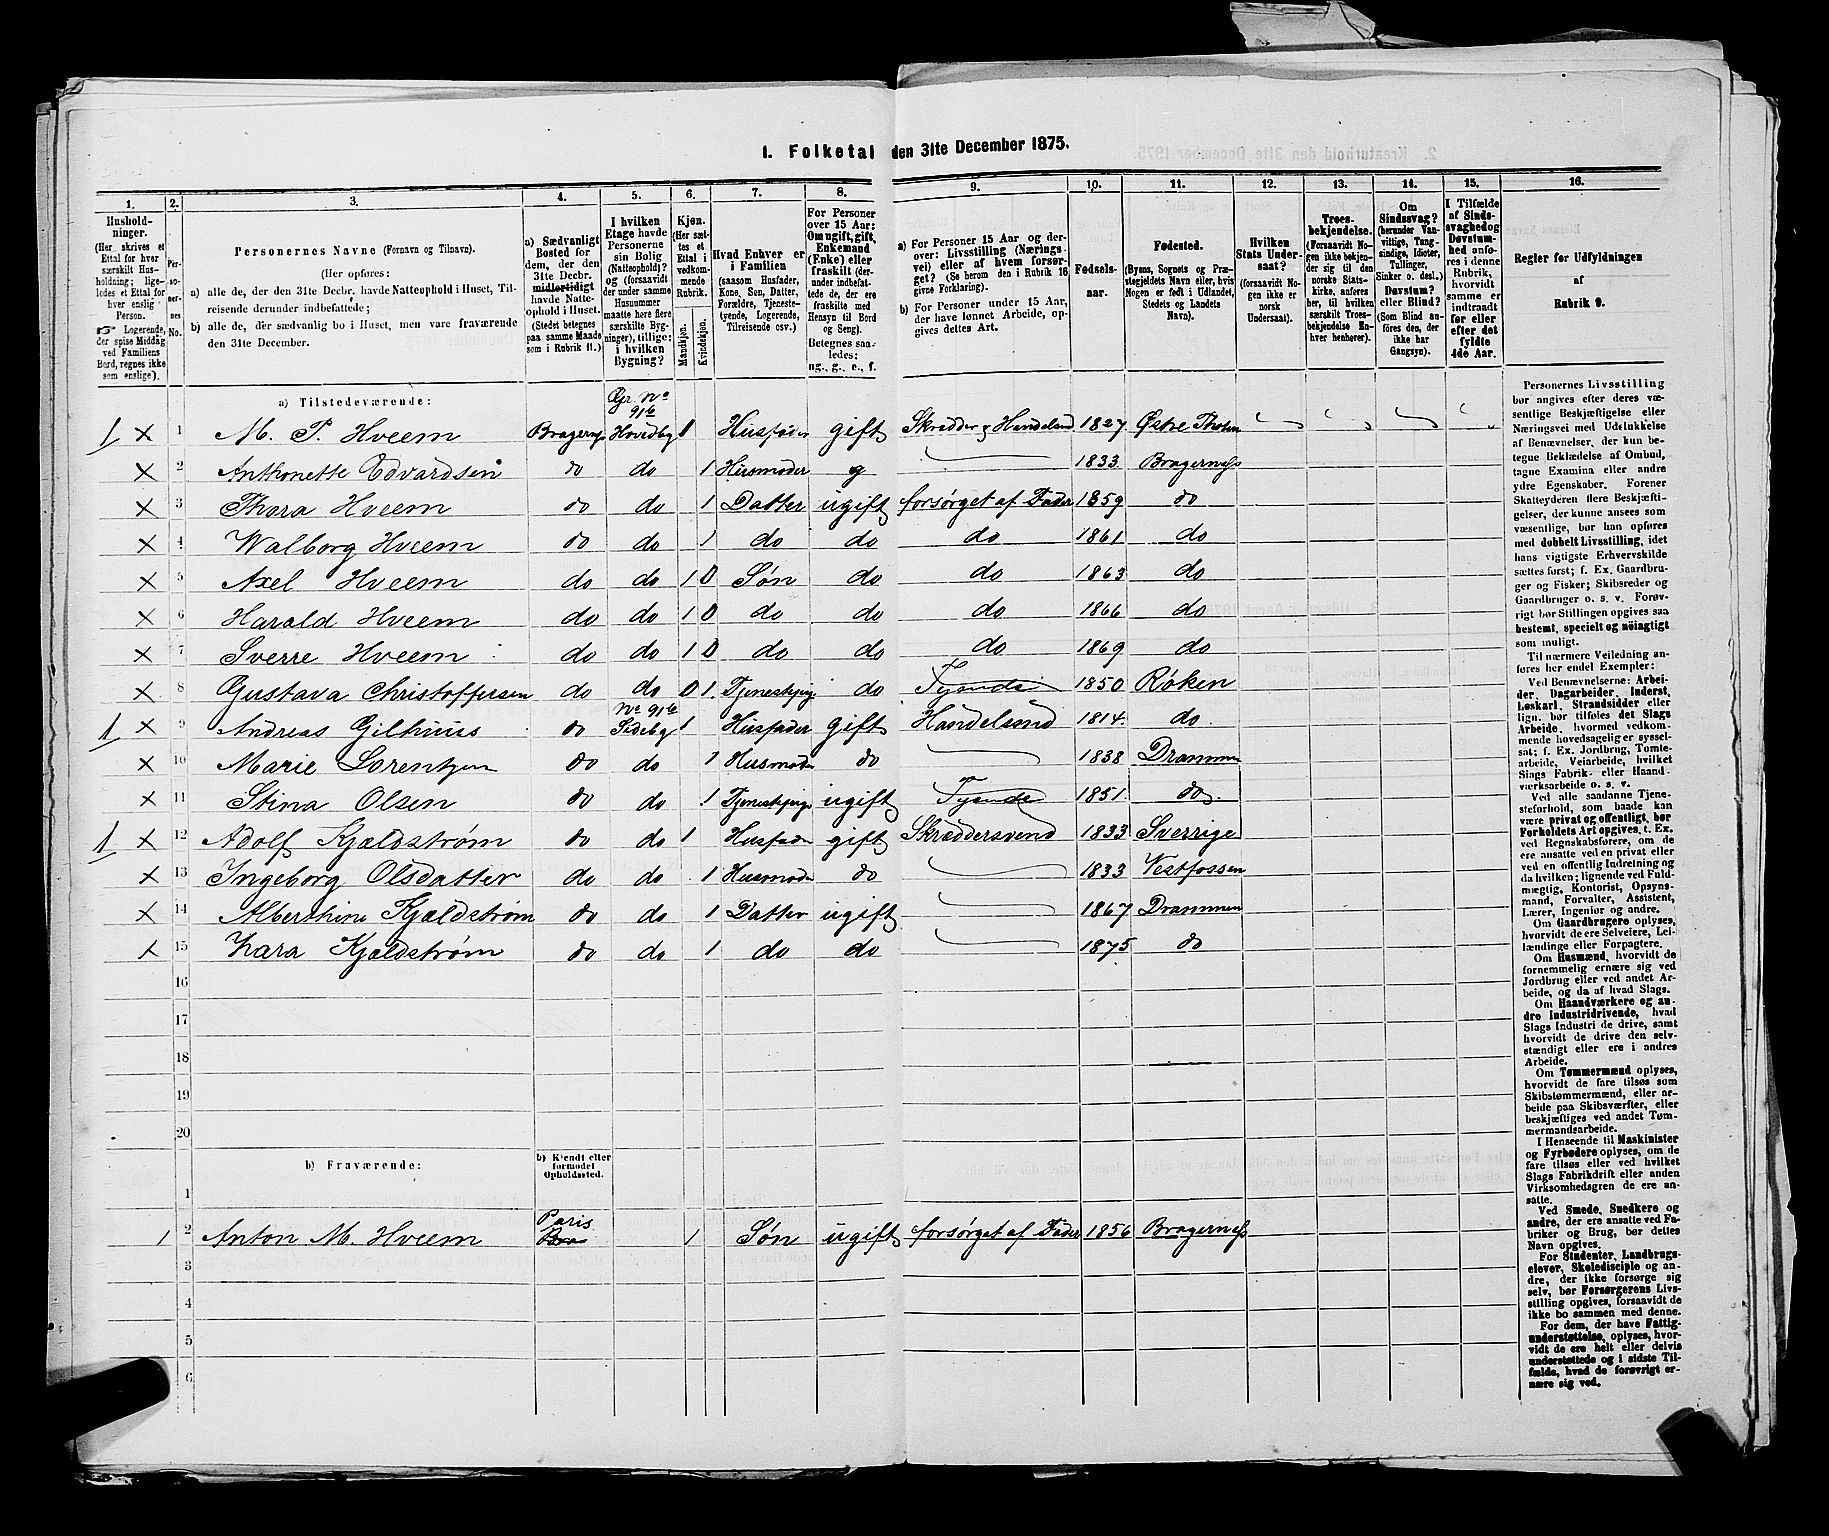 1. Folketal den 31te December 1875.
1. 2. 3. 4. 5. 6. 7. 8. 9. 10. 11. 12. 13. 14. 15. 16.
Husholdninger.
(Her skrives et Ettal for hver særskilt Husholdning; ligeledes et Ettal for hver enslig Person.
☞ Logerende, der spise Middag ved Familiens Bord, regnes ikke som enslige).
Personernes No.
Personernes Navne (Fornavn og Tilnavn).
(Her opføres:
a) alle de, der den 31te Decbr. havde Natteophold i Huset, Tilreisende derunder indbefattede;
b) alle de, der sædvanlig bo i Huset, men vare fraværende den 31te December.
a) Sædvanligt Bosted for dem, der den 31te Decbr. midlertidigt havde Natteophold i Huset. (Stedet betegnes paa samme Maade som i Rubrik 11.)
I hvilken Etage havde Personerne sin Bolig (Natteophold)? og (forsaavidt der under samme Husnummer maatte høre flere særskilte Bygninger), tillige: i hvilken Bygning?
Kjøn. (Her sættes et Ettal i vedkommende Rubrik.
Mandkjøn. Kvindekjøn.
Hvad Enhver er i Familien (saasom Husfader, Kone, Søn, Datter, Forældre, Tjenestetyende, Logerende, Tilreisende osv.)
For Personer over 15 Aar: Om ugift, gift, Enkemand (Enke) eller fraskilt (derunder indbefattede de, der ere fraskilte med Hensyn til Bord og Seng). Betegnes saaledes: ug., g., e., f.
a) For Personer 15 Aar og derover: Livsstilling (Næringsvei) eller af hvem forsørget? (Se herom den i Rubrik 16 givne Forklaring).
b) For Personer under 15 Aar, der have lønnet Arbeide, opgives dettes Art.
Fødselsaar.
Fødested.
(Byens, Sognets og Præstegjeldets Navn eller, hvis Nogen er født i Udlandet, Stedets og Landets Navn).
Hvilken Stats Undersaat? (forsaavidt Nogen ikke er norsk Undersaat).
Troesbekjendelse. (Forsaavidt Nogen ikke bekjender sig til den norske Statskirke, anføres her, til hvilken særskilt Troesbekjendelse Enhver henhører).
Om Sindssvag? (herunder Vanvittige, Tungsindige, Idioter, Tullinger, Sinker o. desl.) Døvstum? eller Blind? (Som Blind anføres den, der ikke har Gangsyn).
I Tilfælde af Sindssvaghed og Døvstumhed anføres i denne Rubrik, hvorvidt samme er indtraadt før eller efter det fyldte 4de Aar.
Regler for Udfyldningen
af
Rubrik 9.
a) Tilstedeværende: Gr. No 91b
1 × 1 M. P. Hveem Bragernes Hovedbg 1 Husfader gift Skrædder & Handelsmd 1827 Østre Thoten
× 2 Anthonette Edvardsen do do 1 Husmoder g 1833 Bragernes
× 3 Thora Hveem do do 1 Datter ugift forsørget af Fader 1859 do
× 4 Walborg Hveem do do 1 do do do 1861 do
× 5 Axel Hveem do do 1 0 Søn do do 1863 do
× 6 Harald Hveem do do 1 0 do do do 1866 do
× 7 Sverre Hveem do do 1 0 do do do 1869 do
× 8 Gustava Christoffersen do do 0 1 Tjenestpige do Tyende 1850 Røken
No 91b
1 × 9 Andreas Gilhuus do Sidebg 1 Husfader gift Handelsmd 1814 do
× 10 Marie Lorentzen do do 1 Husmoder do 1838 Drammen
× 11 Stina Olsen do do 1 Tjenestpige ugift Tyende 1851 do
1 × 12 Adolf Kjældstrøm do do 1 Husfader gift Skræddersvend 1833 Sverrige
× 13 Ingeborg Olsdatter do do 1 Husmoder do 1833 Vestfossen
× 14 Alberthine Kjældstrøm do do 1 Datter ugift 1867 Drammen
× 15 Lara Kjældstrøm do do 1 do do 1875 do
16
17
18
19
20
b) Fraværende: b) Kjendt eller formodet Opholdssted.
1
Paris
1 2 Anton M. Hveem 1 Søn ugift forsørget af Fader 1856 Bragernes
3
4
5
6
Personernes Livsstilling
bør angives efter deres væ-
sentlige Beskjæftigelse eller
Næringsvei med Udelukkelse
af Benævnelser, der kun be-
tegne Beklædelse af Ombud,
tagne Examina eller andre
ydre Egenskaber. Forener
Skatteyderen flere Beskjæfti-
gelser, der kunne ansees som
væsentlige, bør han opføres
med dobbelt Livsstilling, idet
hans vigtigste Erhvervskilde
sættes først; f. Ex. Gaardbru-
ger og Fisker; Skibsreder og
Gaardbruger o. s. v. Forøv-
rigt bør Stillingen opgives saa
bestemt, specielt og nöiagtigt
som muligt.
Til nærmere Veiledning an-
føres her endel Exempler:
Ved Benævnelserne: Arbei-
der, Dagarbeider, Inderst,
Løskarl, Strandsidder eller
lign. bør tilføies det Slags
Arbeide, hvormed vedkom-
mende hovedsagelig er syssel-
sat; f. Ex. Jordbrug, Tomte-
arbeide, Veiarbeide, hvilket
Slags Fabrik- eller Haand-
værksarbeide o. s. v.
Ved alle saadanne Tjene-
steforhold, som baade kan
være privat og offentligt, bør
Forholdets Art opgives, t. Ex.
ved Regnskabsførere, om de
ere ansatte ved en privat eller
ved en offentlig Indretning og
da hvilken; lignende ved Fuld-
mægtig, Kontorist, Opsyns-
mand, Forvalter, Assistent,
Lærer, Ingeniør og andre.
Om Gaardbrugere oplyses,
hvorvidt de ere Selveiere, Lei-
lændinge eller Forpagtere.
Om Husmænd, hvorvidt de
fornemmelig ernære sig ved
Jordbrug eller ved andet Ar-
beide, og da af hvad Slags.
Om Haandværkere og an-
dre Industridrivende, hvad
Slags Industri de drive, samt
hvorvidt de drive den selv-
stændigt eller ere i andres
Arbeide.
Om Tømmermænd oplyses,
hvorvidt de fare tilsøs som
Skibstømmermænd, eller ar-
beide paa Skibsværfter, eller
beskjæftiges ved andet Tøm-
mermandsarbeide.
I Henseende til Maskinister
og Fyrbødere oplyses, om de
fare tilsøs eller ved hvilket
Slags Fabrikdrift eller anden
Virksomhedsgren de ere an-
satte.
Ved Smede, Snedkere og
andre, der ere ansatte ved Fa-
briker og Brug, bør dettes
Navn opgives.
For Studenter, Landbrugs-
elever, Skoledisciple og an-
dre, der ikke forsørge sig
selv, bør Forsørgerens Livs-
stilling opgives, forsaavidt de
ikke bo sammen med denne.
For dem, der have Fattig-
understøttelse, oplyses, hvor-
vidt de ere helt eller delvis
understøttede og i sidste Til-
fælde, hvad de forøvrigt er-
nære sig ved.